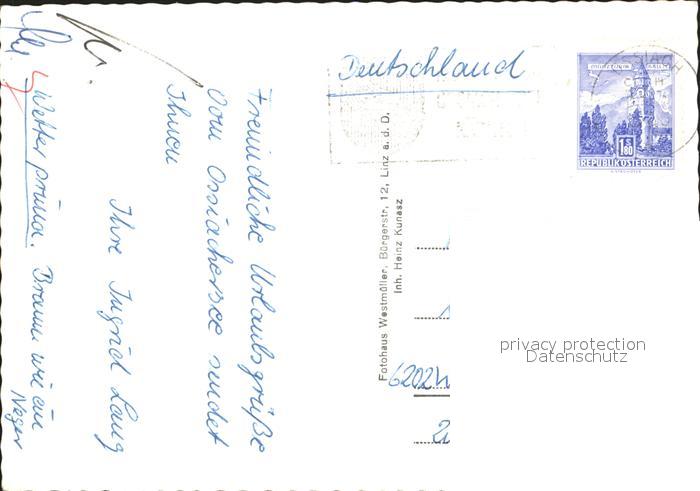 Deutschland
MÜNZTURM HALL
S
1.80
REPUBLIK ÖSTERREICH
Freundliche Urlaubsgrüße
vom Ossiachersee sendet
Ihnen
Ihre Ingrid Lang
Wetter prima. Braun wie ein
Neger
Fotohaus Westmüller, Bürgerstr. 12, Linz a. d. D.
Inh. Heinz Kunasz
6202
privacy protection
Datenschutz